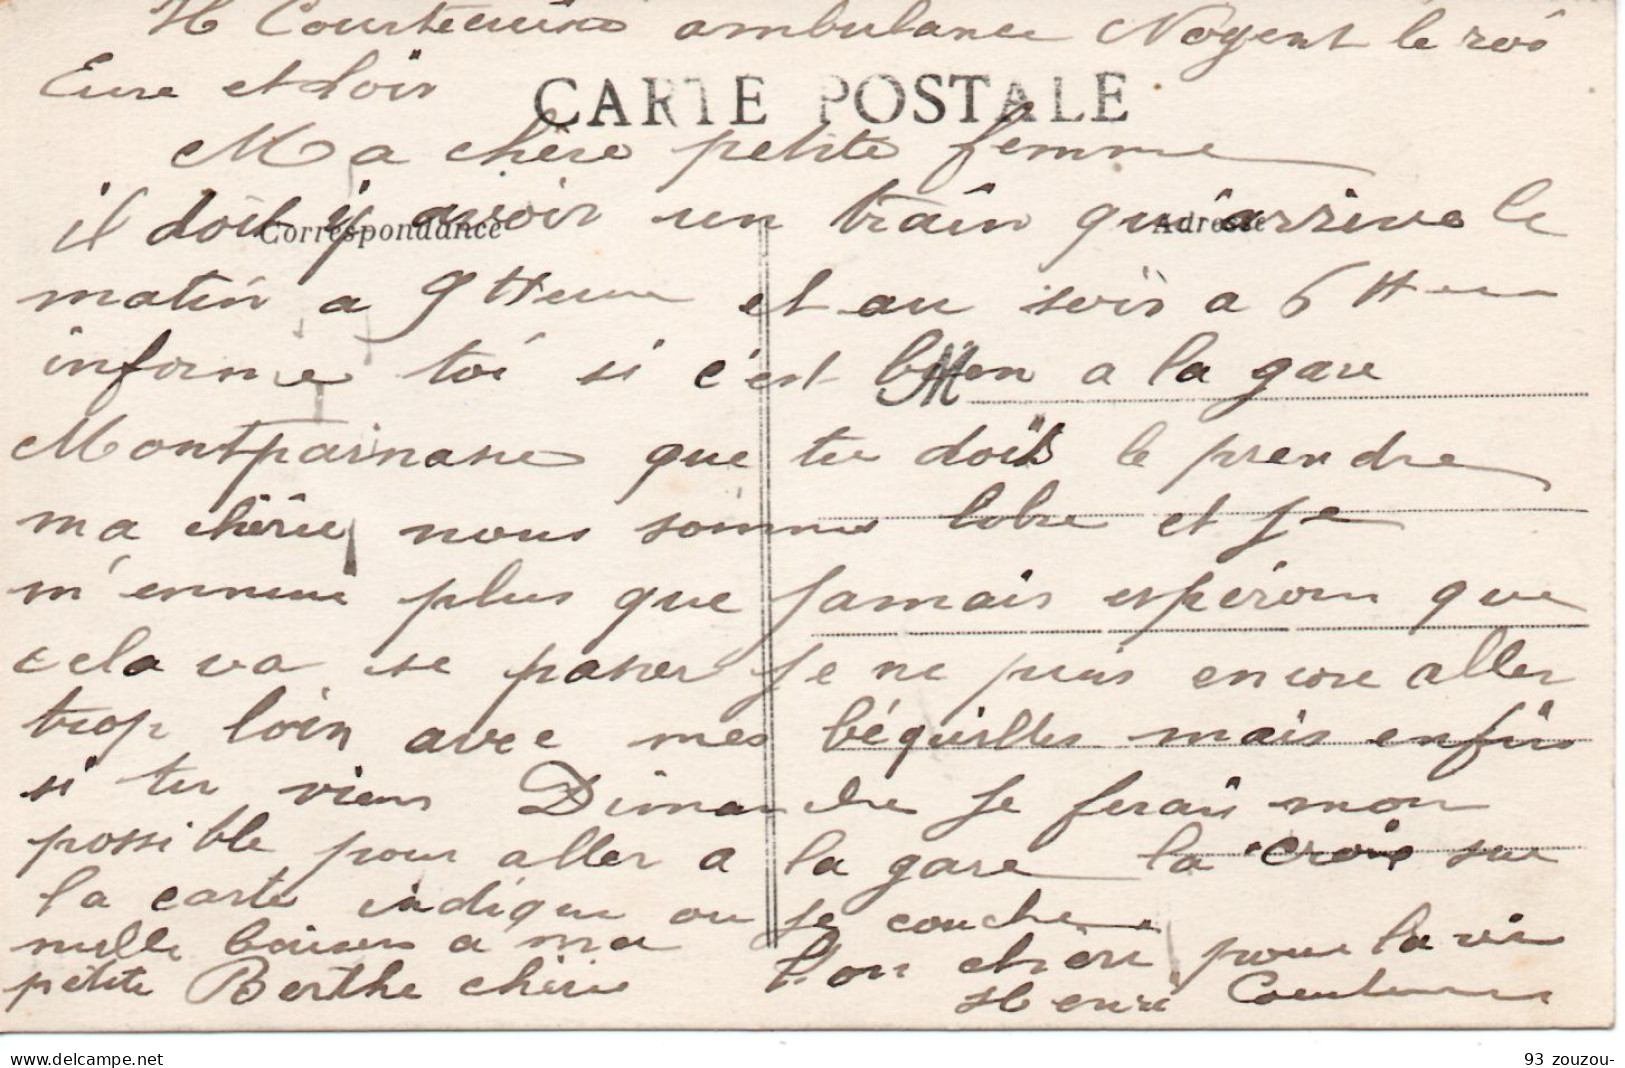 H Courtecuisse ambulance Nogent le roi
Eure et Loir
CARTE POSTALE
Ma chère petite femme
Correspondance
Adresse
il doit y avoir un train qui arrive le
matin a 9 Heure et au soir a 6 Heure
informe toi si c'est bien a la gare
M
Montpainasse que tu dois le prendre
ma chèrie nous somme libre et je
m'ennuie plus que jamais espérons que
cela va se passer je ne puis encore aller
trop loin avec mes béquilles mais enfin
si tu viens Dimanche je ferais mon
possible pour aller a la gare la croix sur
la carte indique ou je couche
mille baisers a ma
petite Berthe chérie
Ton chèri pour la vie
Henri
delcampe.net
93 zouzou-